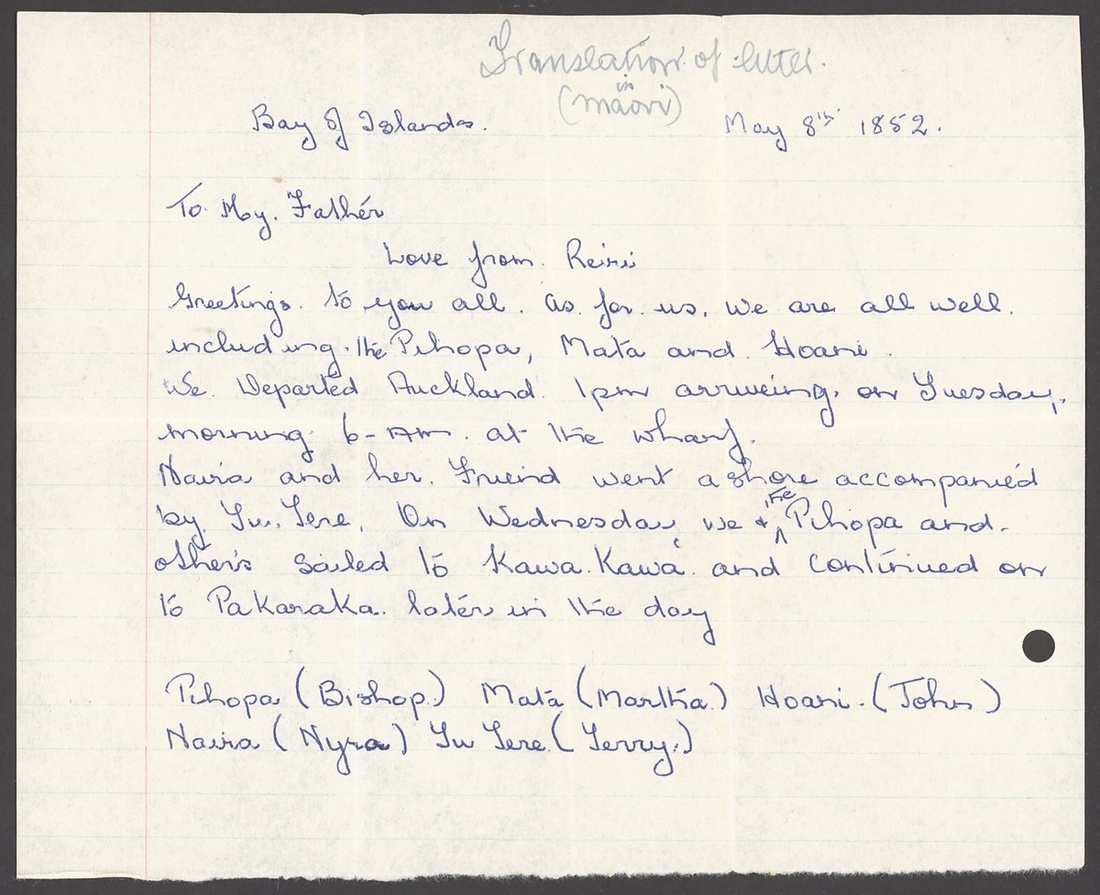 Translation of letter.
in
(maori)
Bay of Islands. May 8th 1852.
To. My. Father
Love from. Reiri
Greetings. to you all. as. for. us. we are all well.
including. the Pihopa, Mata and. Hoani.
We. Departed Auckland. 1pm arriveing. on Tuesday.
morning 6-AM. at the wharf.
Naira and her. Friend went ashore accompanied
by. Tu. Tere. On Wednesday we & the Pihopa and.
others sailed to Kawa.Kawa. and continued on
to Pakaraka. later in the day
Pihopa (Bishop.) Mata (Martha.) Hoani. (John)
Naira (Nyra) Tu Tere. (Terry.)